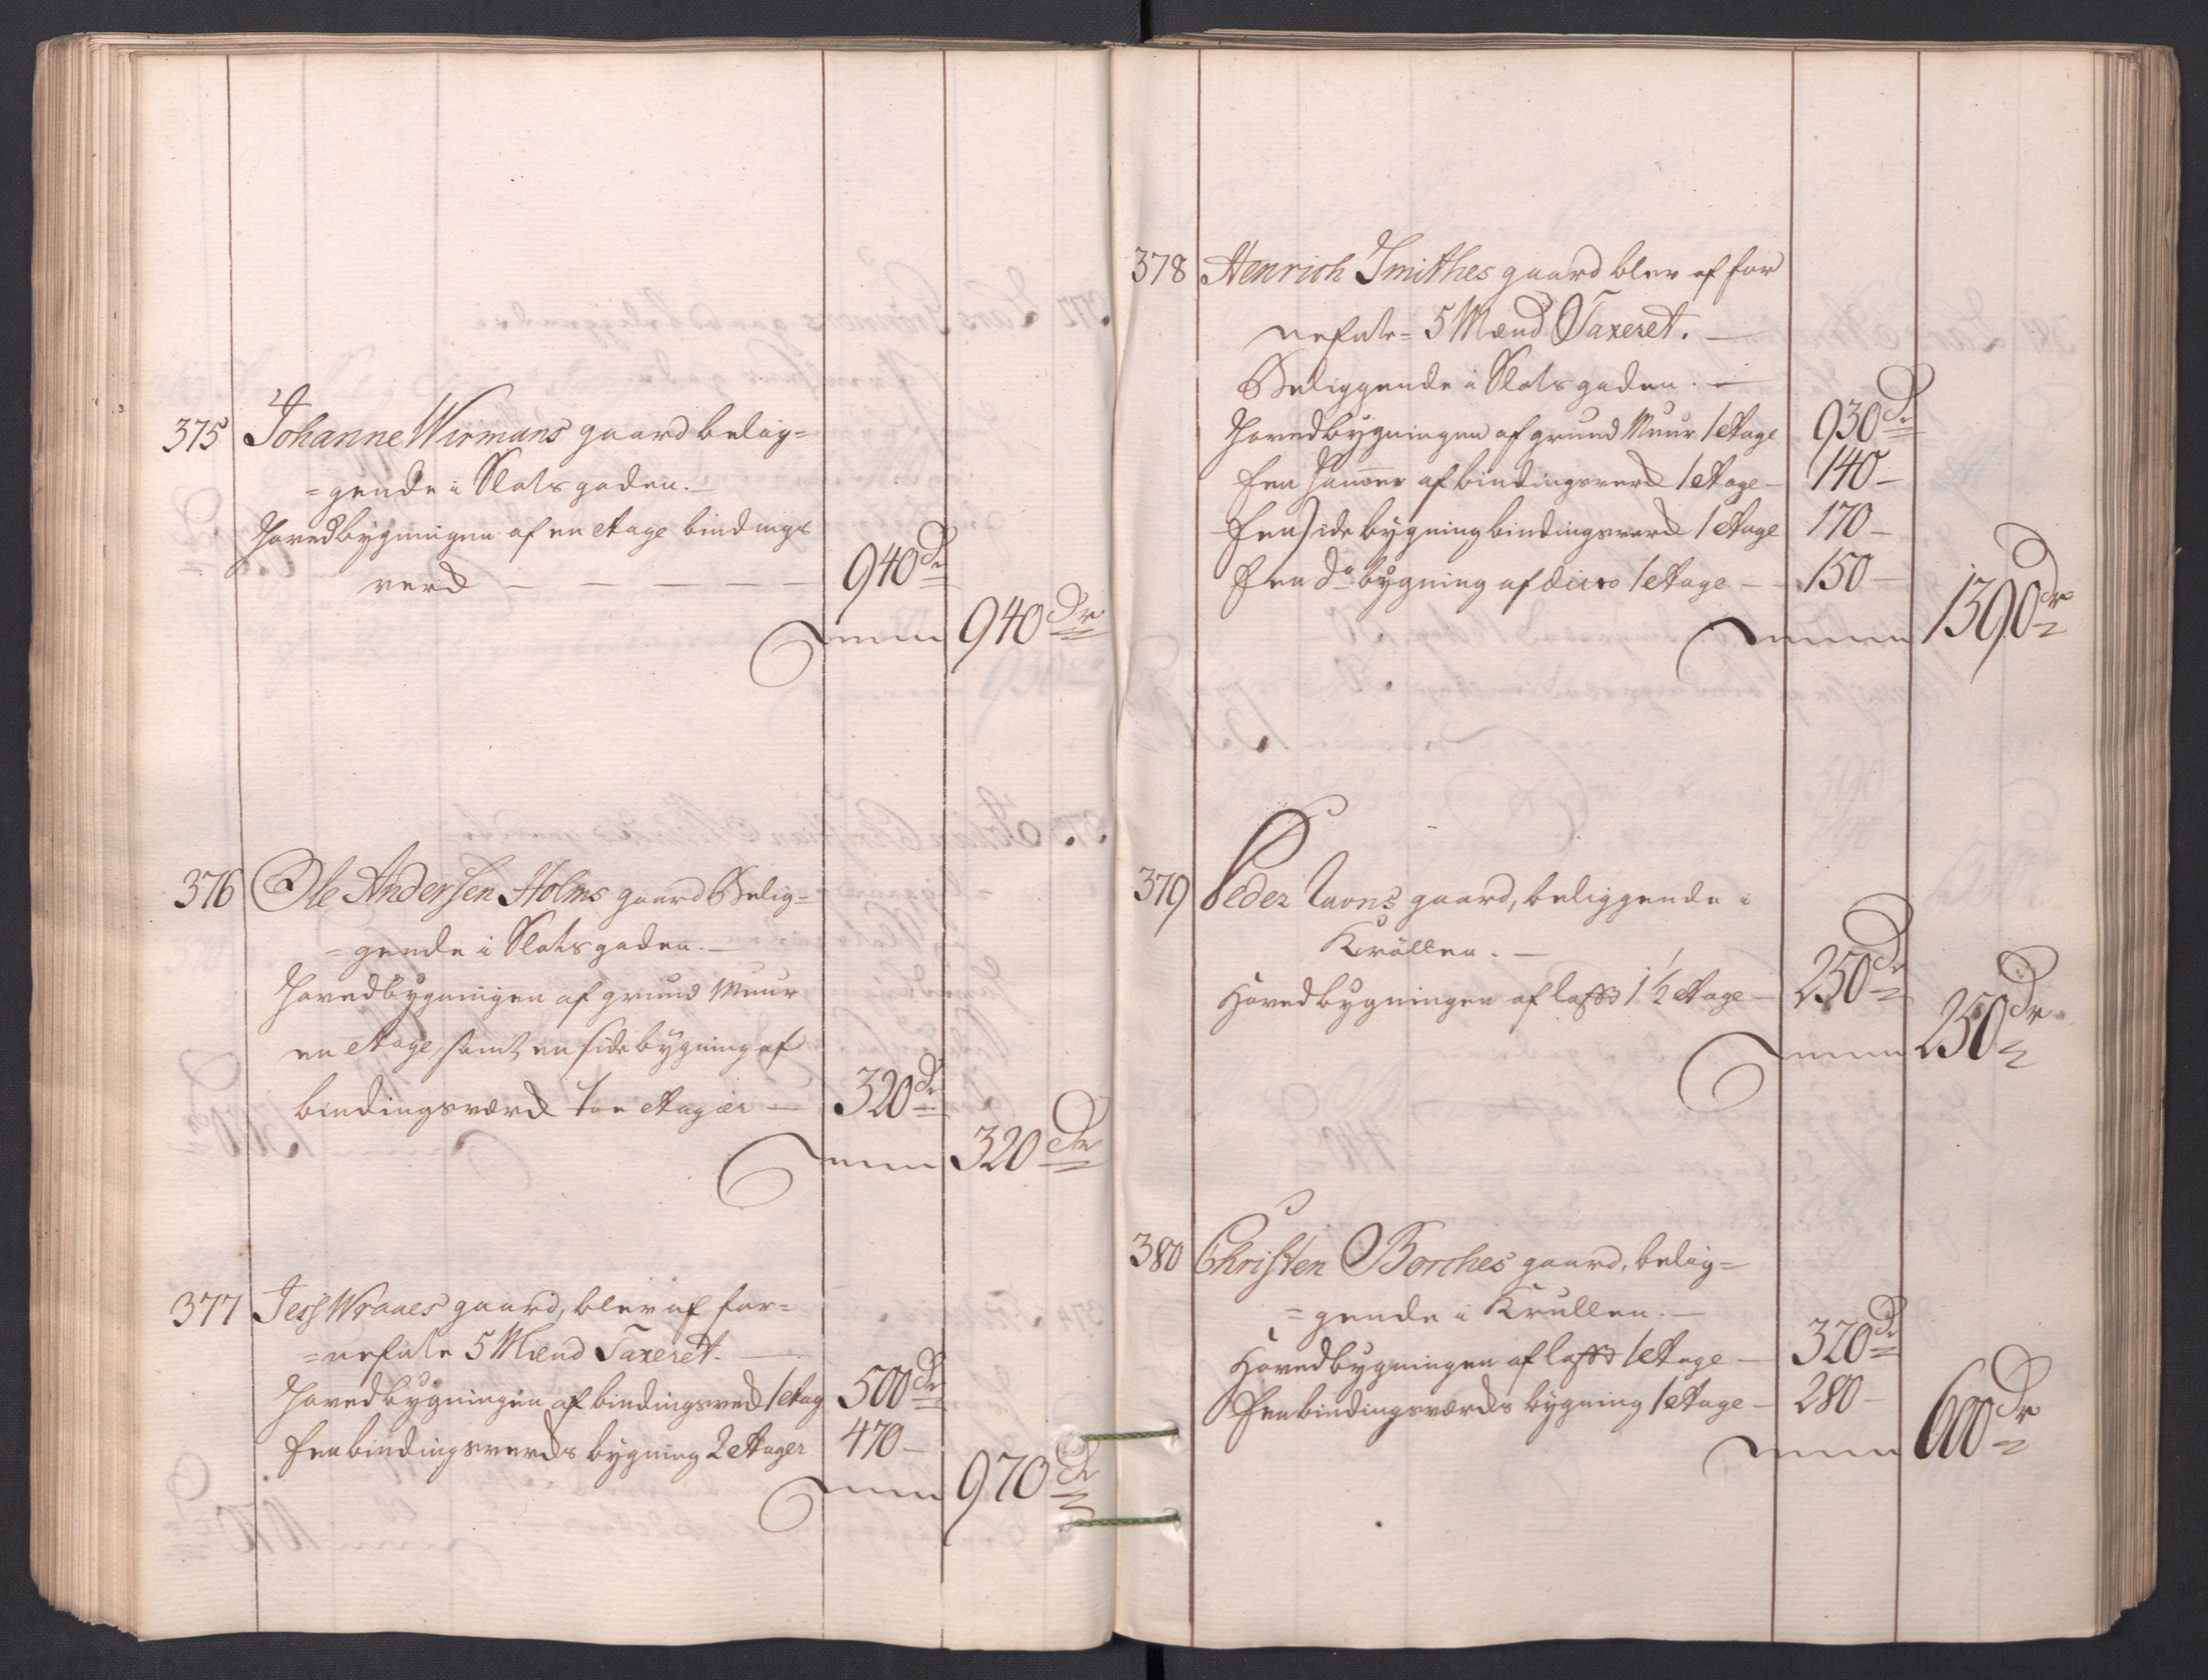 375 Johanne Wirmans gaard belig=
=gende i Slotsgaden.
Hovedbygningen af en Etage bindings
verd — — — — — 940 Dr
Summa 940 Dr
376 Ole Andersen Holms gaard Belig=
=gende i Slotsgaden.—
Hovedbygningen af grund Muur
en Etage, samt en side bygning af
bindingsværd toe Etager — 320 Dr
Summa 320 Dr
377 Jess Wraaes gaard, blev af for=
=nefnte 5 Mænd Taxeret.—
Hovedbygningen af bindingsverd 1 Etag 500 Dr
Een bindingsverds bygning 2 Etager 470 —
Summa 970 Dr
378 Henrich Smithes gaard blev af for
nefnte= 5 Mænd Taxeret.—
Beliggende i Slotsgaden.—
Hovedbygningen af grund Muur 1 Etage 930 Dr
Een af bindingsverd 1 Etage — 140 —
Een side bygning bindingsverd 1 Etage 170 —
Een do bygning af dito 1 Etage — 150 —
Summa 1390 Dr
379 Peder Ravns gaard, beliggende i
Krållen.—
Hovedbygningen af 1 1/2 Etage — 250 Dr
Summa 250 Dr
380 Christen Borches gaard, belig=
=gende i Krullen.—
Hovedbygningen af 1 Etage — 320 Dr
Een bindingsværds bygning 1 Etage — 280 —
Summa 600 Dr